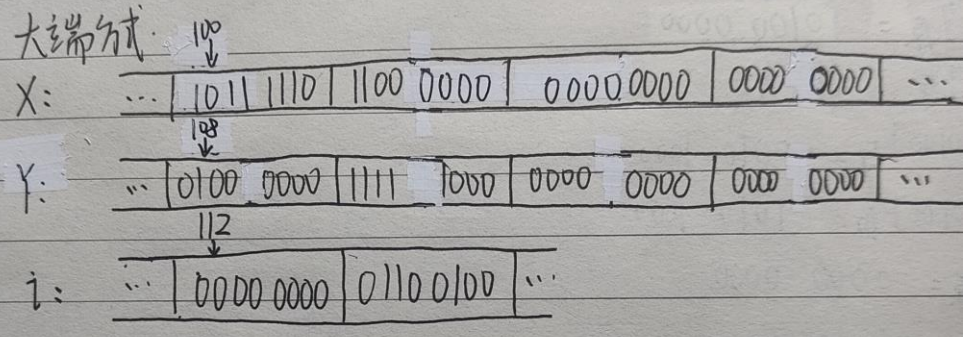 大端方式.
100
↓
X: ... | 1011 1110 | 1100 0000 | 0000 0000 | 0000 0000 | ...
108
↓
Y: ... | 0100 0000 | 1111 1000 | 0000 0000 | 0000 0000 | ...
112
↓
i: ... | 0000 0000 | 0110 0100 | ...